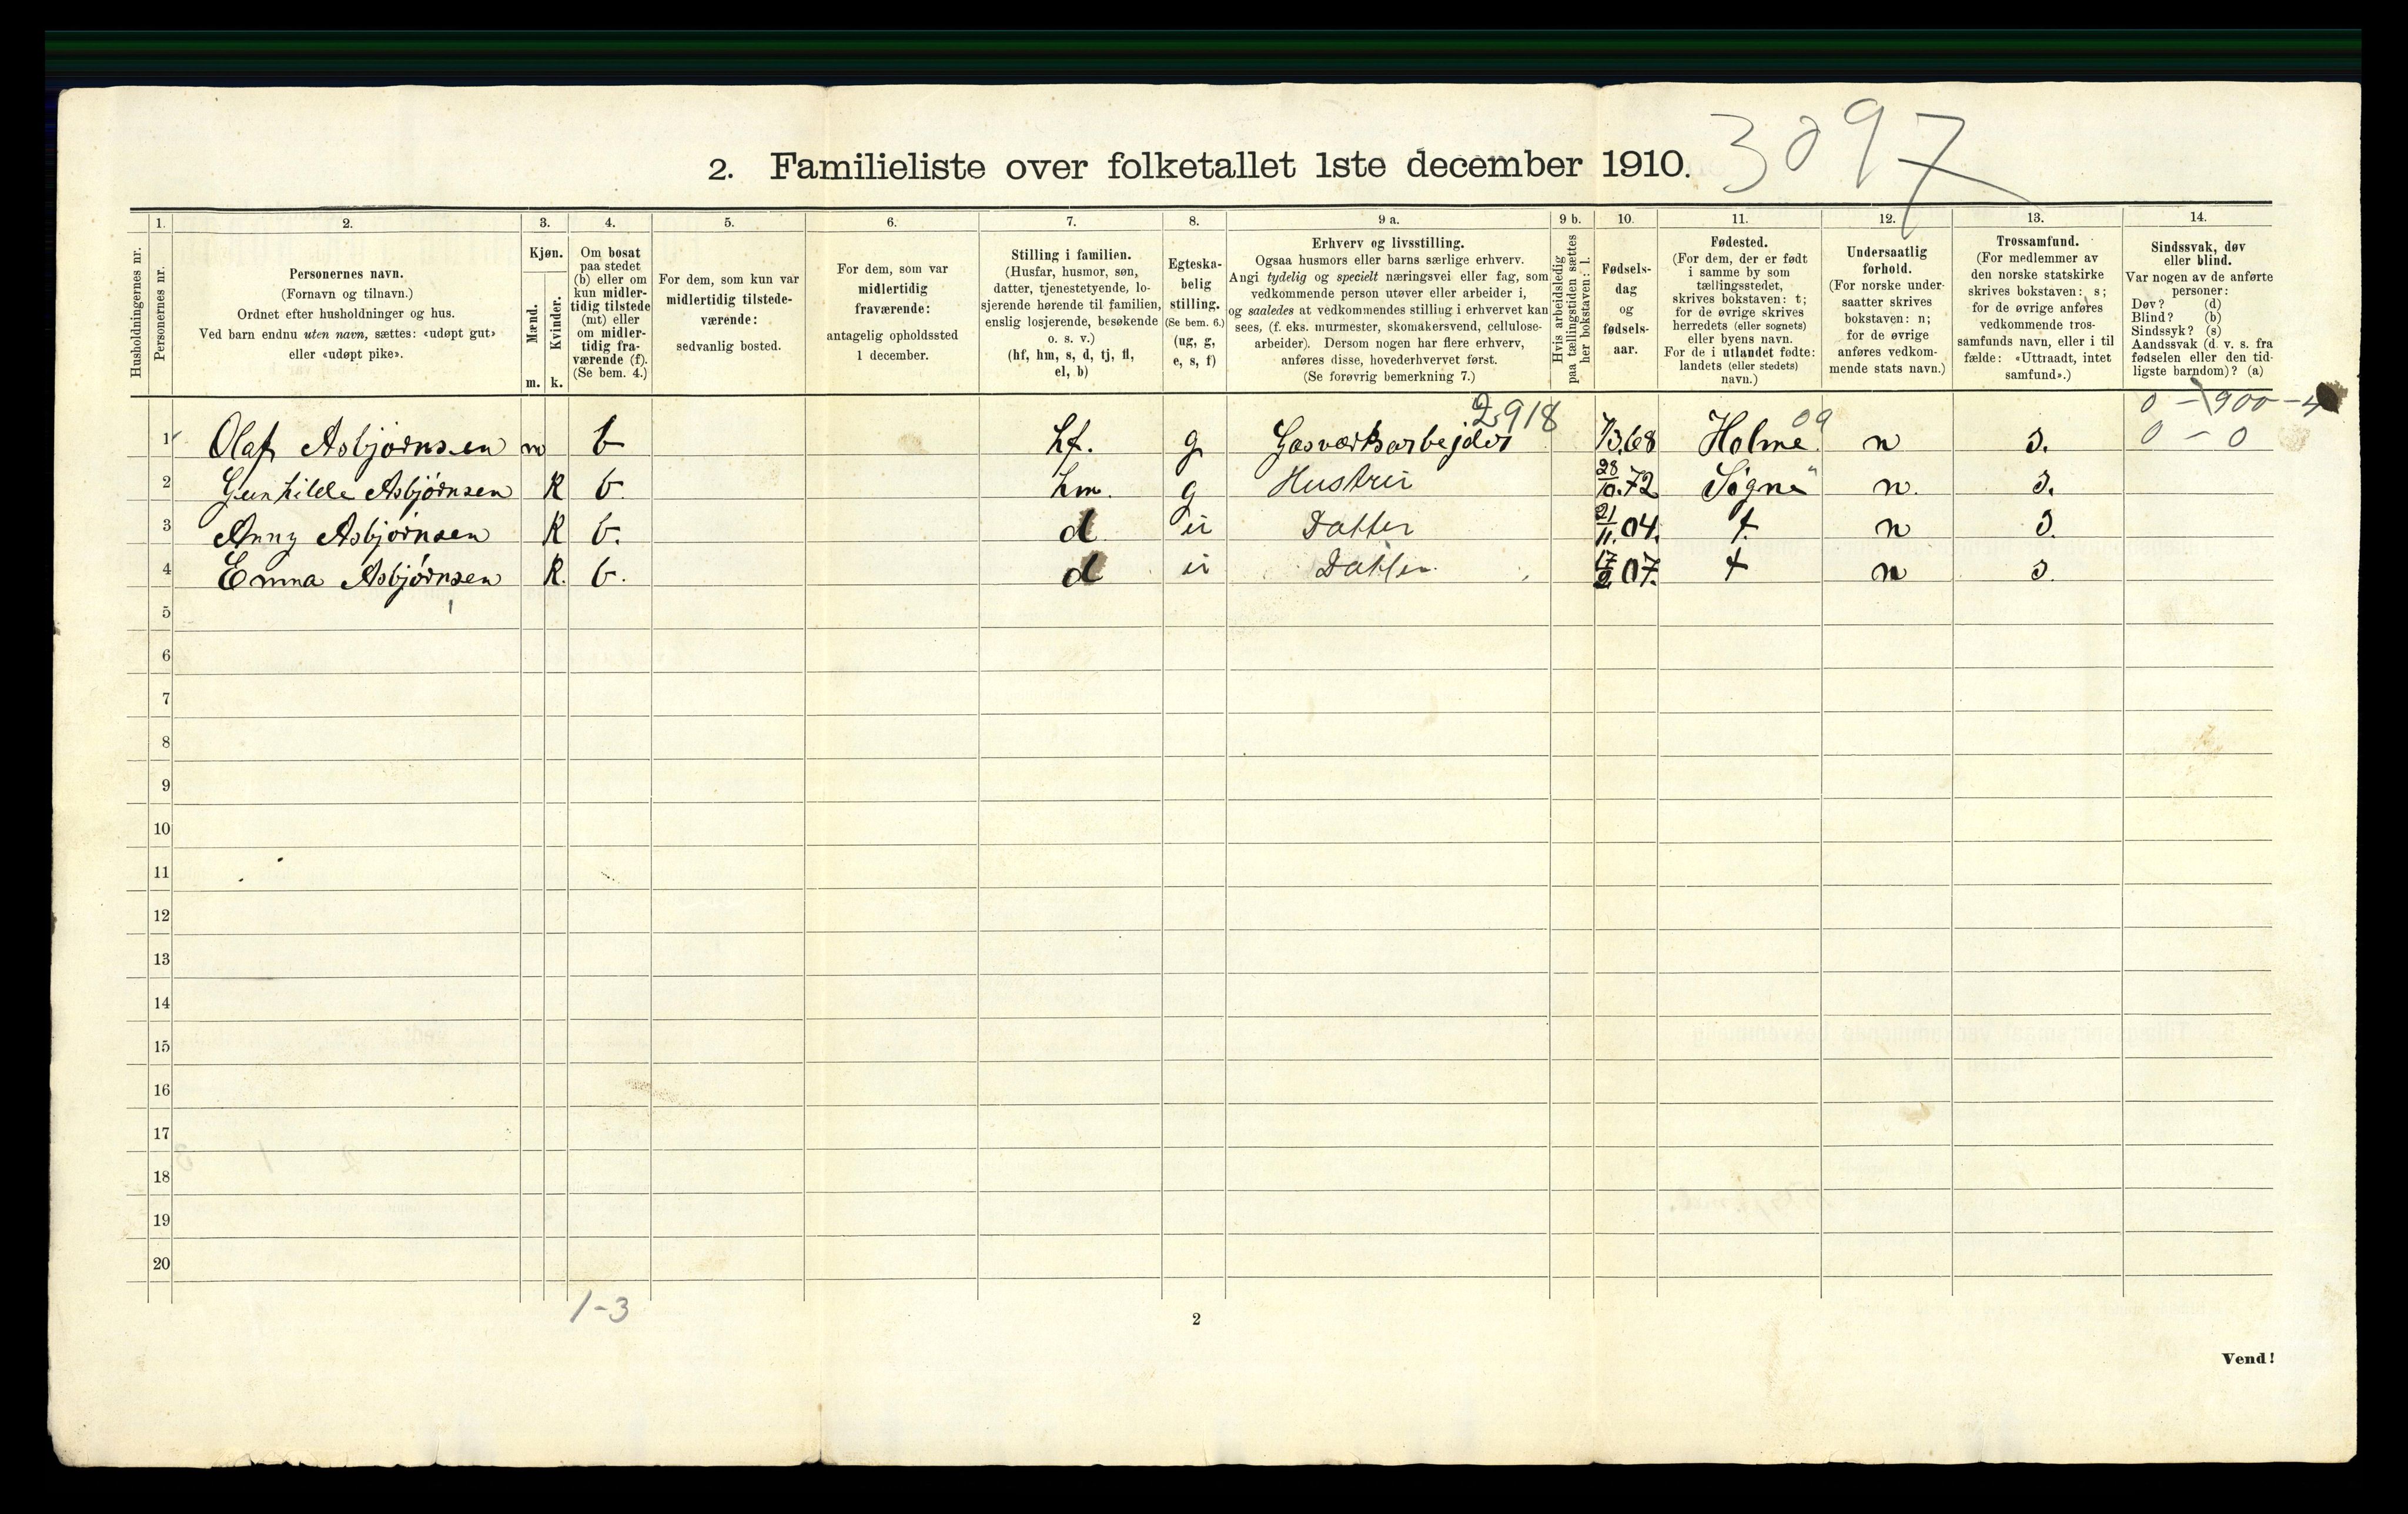 3097
2. Familieliste over folketallet 1ste december 1910.
Husholdningernes nr.
1. Personernes nr.
2. Personernes navn.
(Fornavn og tilnavn.)
Ordnet efter husholdninger og hus.
Ved barn endnu uten navn, sættes: «udøpt gut»
eller «udøpt pike».
3. Kjøn.
Mænd. Kvinder.
m. k.
4. Om bosat
paa stedet
(b) eller om
kun midler-
tidig tilstede
(mt) eller
om midler-
tidig fra-
værende (f).
(Se bem. 4.)
5. For dem, som kun var
midlertidig tilstede-
værende:
sedvanlig bosted.
6. For dem, som var
midlertidig
fraværende:
antagelig opholdssted
1 december.
7. Stilling i familien.
(Husfar, husmor, søn,
datter, tjenestetyende, lo-
sjerende hørende til familien,
enslig losjerende, besøkende
o. s. v.)
(hf, hm, s, d, tj, fl,
el, b)
8. Egteska-
belig
stilling.
(Se bem. 6.)
(ug, g,
e, s, f)
9 a. Erhverv og livsstilling.
Ogsaa husmors eller barns særlige erhverv.
Angi tydelig og specielt næringsvei eller fag, som
vedkommende person utøver eller arbeider i,
og saaledes at vedkommendes stilling i erhvervet kan
sees, (f. eks. murmester, skomakersvend, cellulose-
arbeider). Dersom nogen har flere erhverv,
anføres disse, hovederhvervet først.
(Se forøvrig bemerkning 7.)
9 b. Hvis arbeidsledig
paa tællingstiden sættes
her bokstaven: l.
10. Fødsels-
dag
og
fødsels-
aar.
11. Fødested.
(For dem, der er født
i samme by som
tællingsstedet,
skrives bokstaven: t;
for de øvrige skrives
herredets (eller sognets)
eller byens navn.
For de i utlandet fødte:
landets (eller stedets)
navn.)
12. Undersaatlig
forhold.
(For norske under-
saatter skrives
bokstaven: n;
for de øvrige
anføres vedkom-
mende stats navn.)
13. Trossamfund.
(For medlemmer av
den norske statskirke
skrives bokstaven: s;
for de øvrige anføres
vedkommende tros-
samfunds navn, eller i til
fælde: «Uttraadt, intet
samfund».)
14. Sindssvak, døv
eller blind.
Var nogen av de anførte
personer:
Døv? (d)
Blind? (b)
Sindssyk? (s)
Aandssvak (d. v. s. fra
fødselen eller den tid-
ligste barndom)? (a)
2918 09 0 - 1900 - 4
1 Olaf Asbjørnsen m b hf. g Gasværksarbejder 68 Holme n s. 0 - 0
2 Gunhilde Asbjørnsen K b. hm. g Hustru 28/10.72 Søgne n. s.
3 Anny Asbjørnsen K b. d u Datter 21/11.04. t. n s.
4 Emma Asbjørnsen K. b. d u Datter 17/2 07. t n s.
5
6
7
8
9
10
11
12
13
14
15
16
17
18
19
20
1-3
2
Vend!